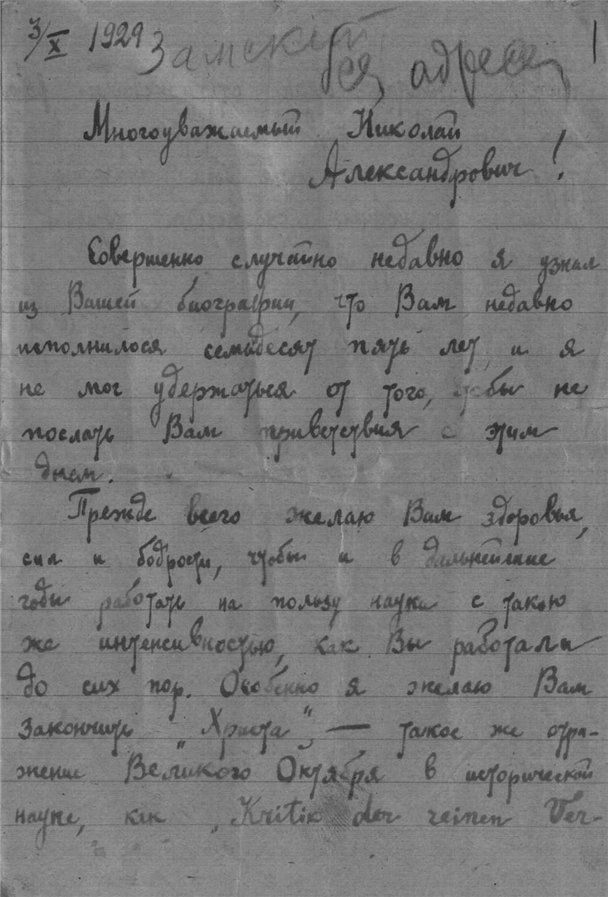 3/X 1929 Замский без адреса 1
Многоуважаемый Николай
Александрович!
Совершенно случайно недавно я узнал
из Вашей биографии, что Вам недавно
исполнилося семьдесят пять лет, и я
не мог удержаться от того, чтобы не
послать Вам приветствия с этим
днем.
Прежде всего желаю Вам здоровья,
сил и бодрости, чтобы и в дальнейшие
годы работать на пользу науки с такою
же интенсивностью, как Вы работали
до сих пор. Особенно я желаю Вам
закончить „Христа", — такое же отра-
жение Великого Октября в исторической
науке, как „Kritik der reinen Ver-